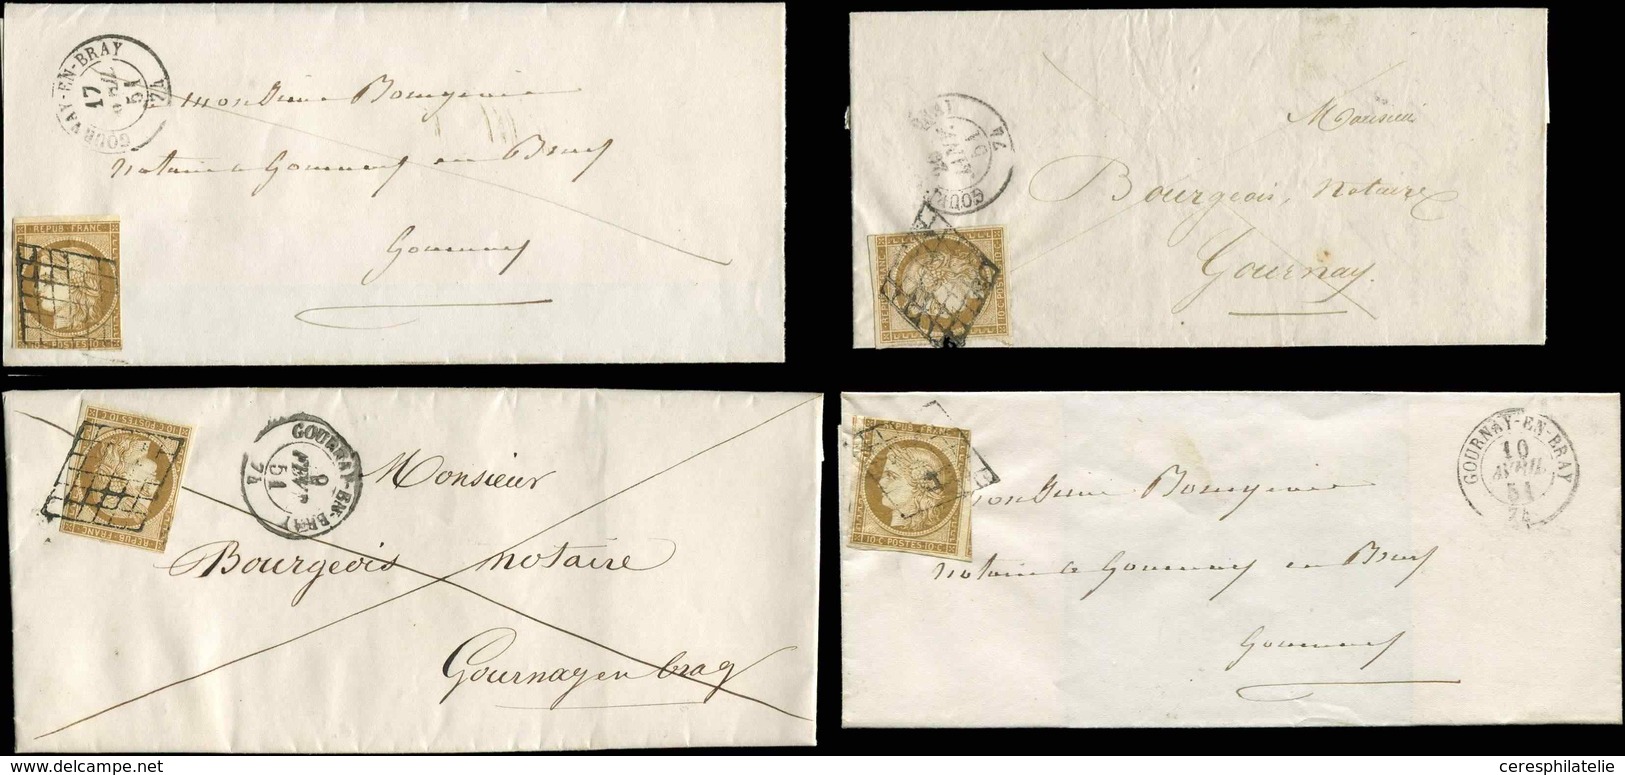 GOURNAY-EN-BRAY
17
51
74
monsieur Bourgeois
notaire a Gournay en Bray
Gournay
REPUB FRANC
POSTES 10 C
74
51
Monsieur
Bourgeois, notaire
Gournay.
10 C POSTES 10 C
REPUB FRANC
GOURNAY-EN-BRAY
8
FEVR
51
74
Monsieur
Bourgeois notaire
Gournay en bray
REPUB FRANC
10 C POSTES 10 C
GOURNAY-EN-BRAY
10
AVRIL
51
74
monsieur Bourgeois
notaire a Gournay en Bray
Gournay
delcampe.net
ceresphilatelie